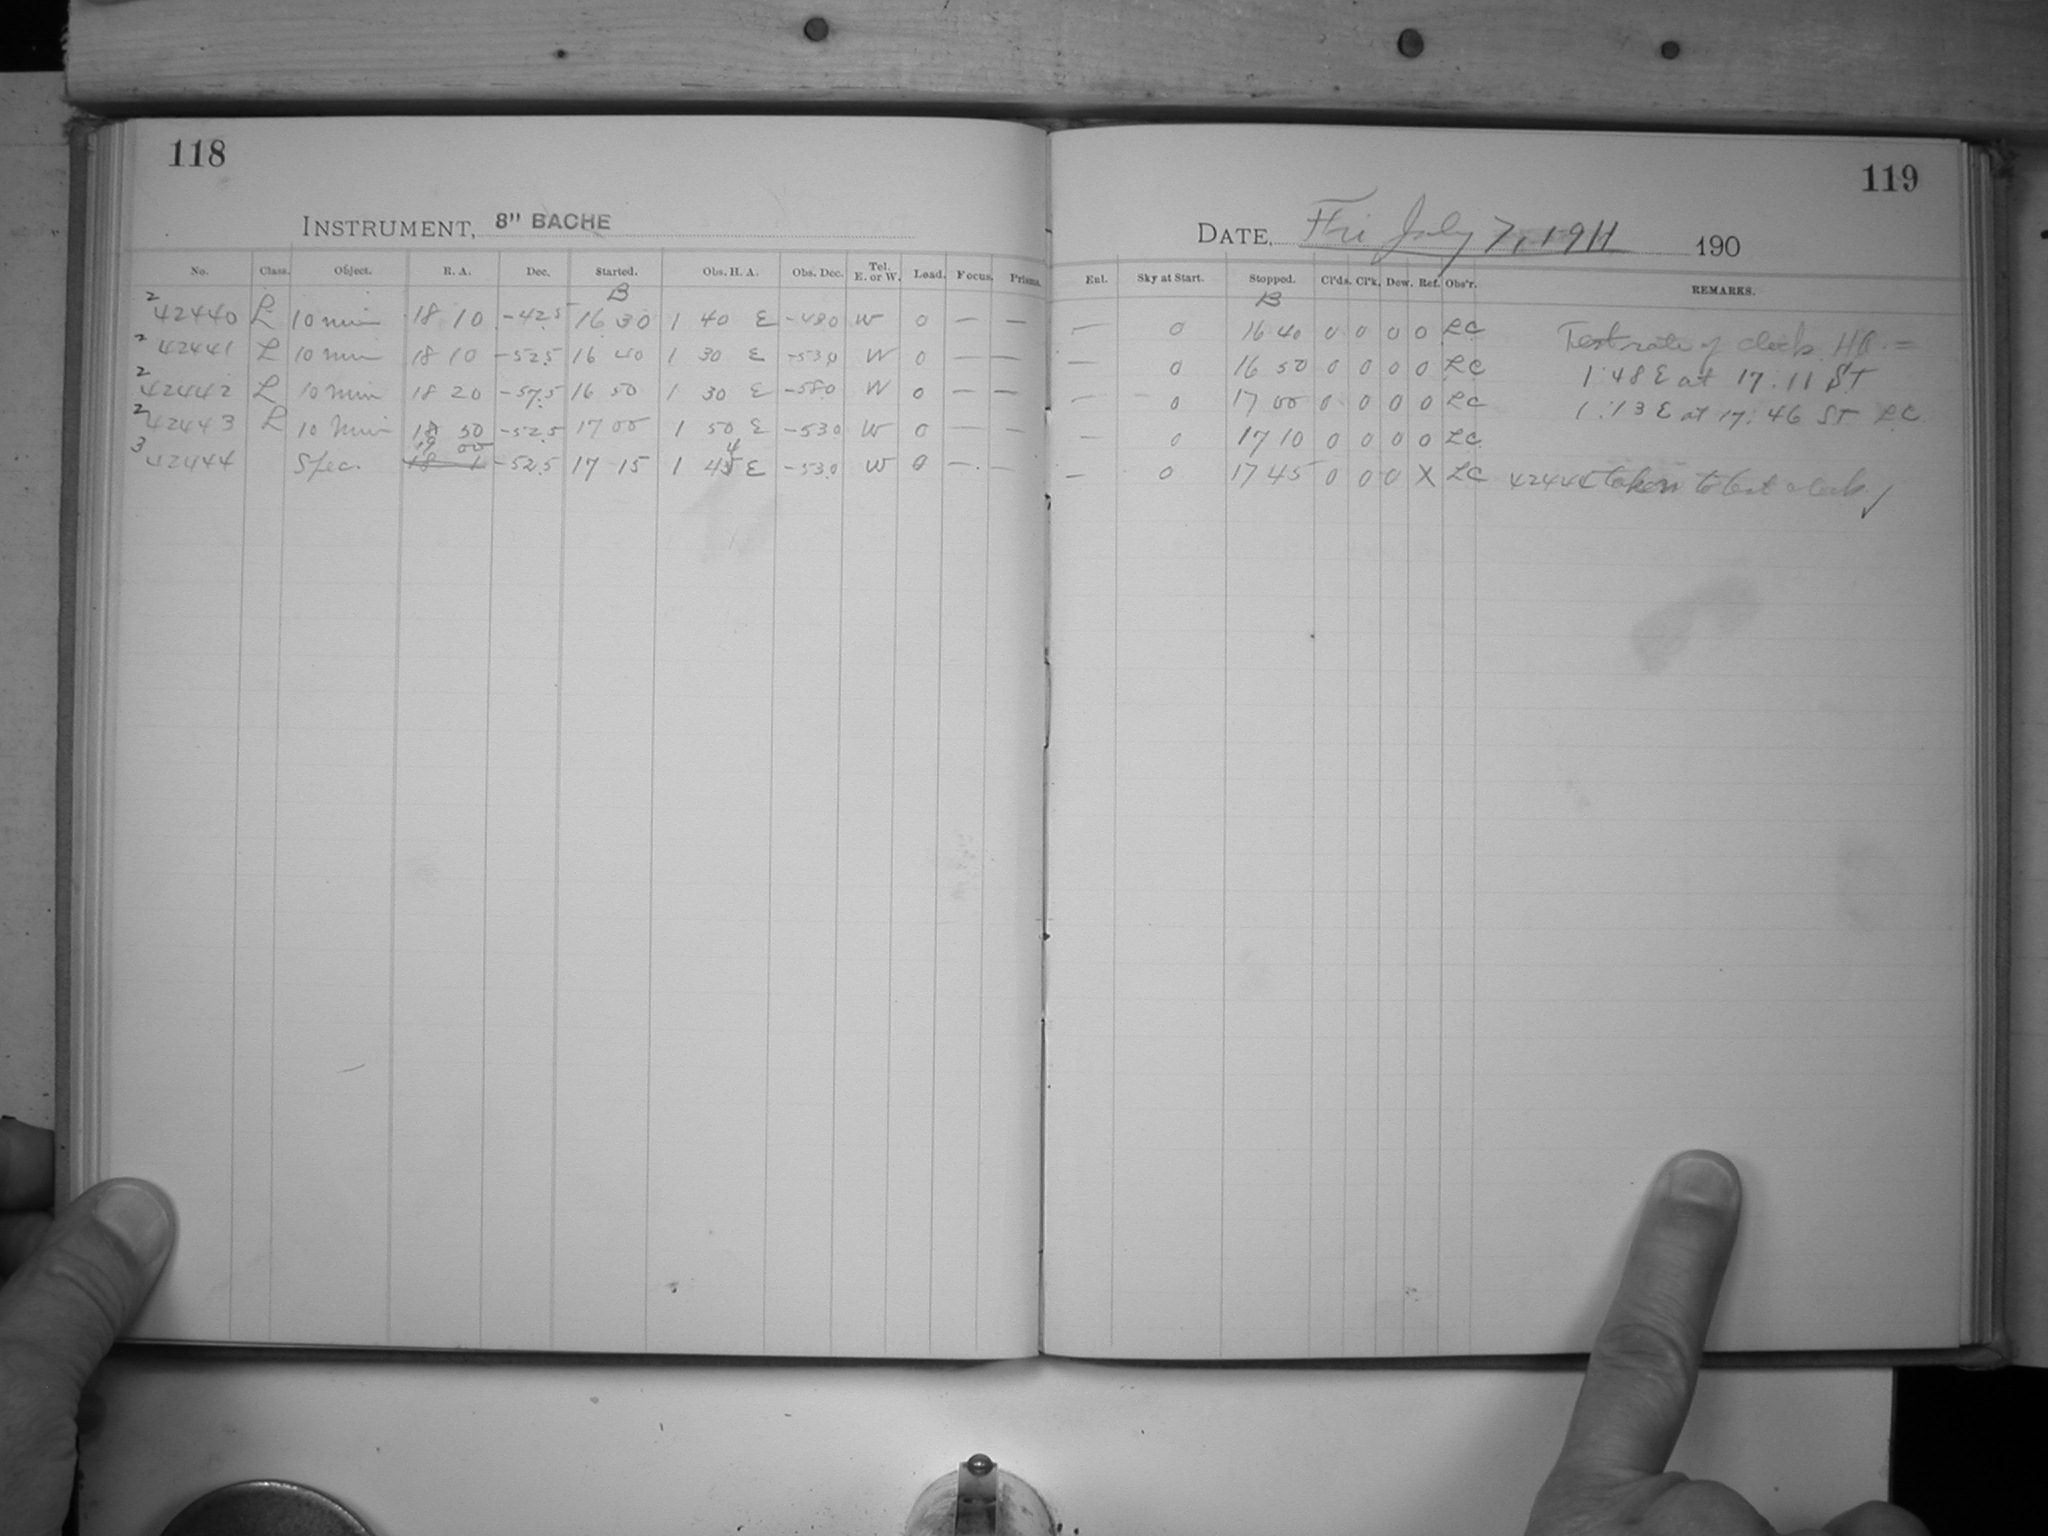 118
INSTRUMENT, 8" BACHE
No. Class. Object. R. A. Dec. Started. Obs. H. A. Obs. Dec. Tel. E. or W. Load. Focus. Prisms.
B
2 42440 L 10 min 18 10 -42.5 16 30 1 40 E -480 W 0 — —
2 42441 L 10 min 18 10 -52.5 16 40 1 30 E -530 W 0 — —
2 42442 L 10 min 18 20 -57.5 16 50 1 30 E -580 W 0 — —
2 42443 L 10 min 18 50 -52.5 17 00 1 50 E -530 W 0 — —
19 00 4
3 42444 Spec. 18 1 -52.5 17 15 1 45 E -530 W 0 — —
119
DATE, Fri July 7, 1911 190
Enl. Sky at Start. Stopped. Cl'ds. Cl'k. Dew. Ref. Obs'r. REMARKS.
B
— 0 16 40 0 0 0 0 LC Test rate of clock. HA. =
— 0 16 50 0 0 0 0 LC 1:48 E at 17:11 ST
— 0 17 00 0 0 0 0 LC 1:13 E at 17:46 ST LC
— 0 17 10 0 0 0 0 LC
— 0 17 45 0 0 0 X LC 42444 taken to test clock.